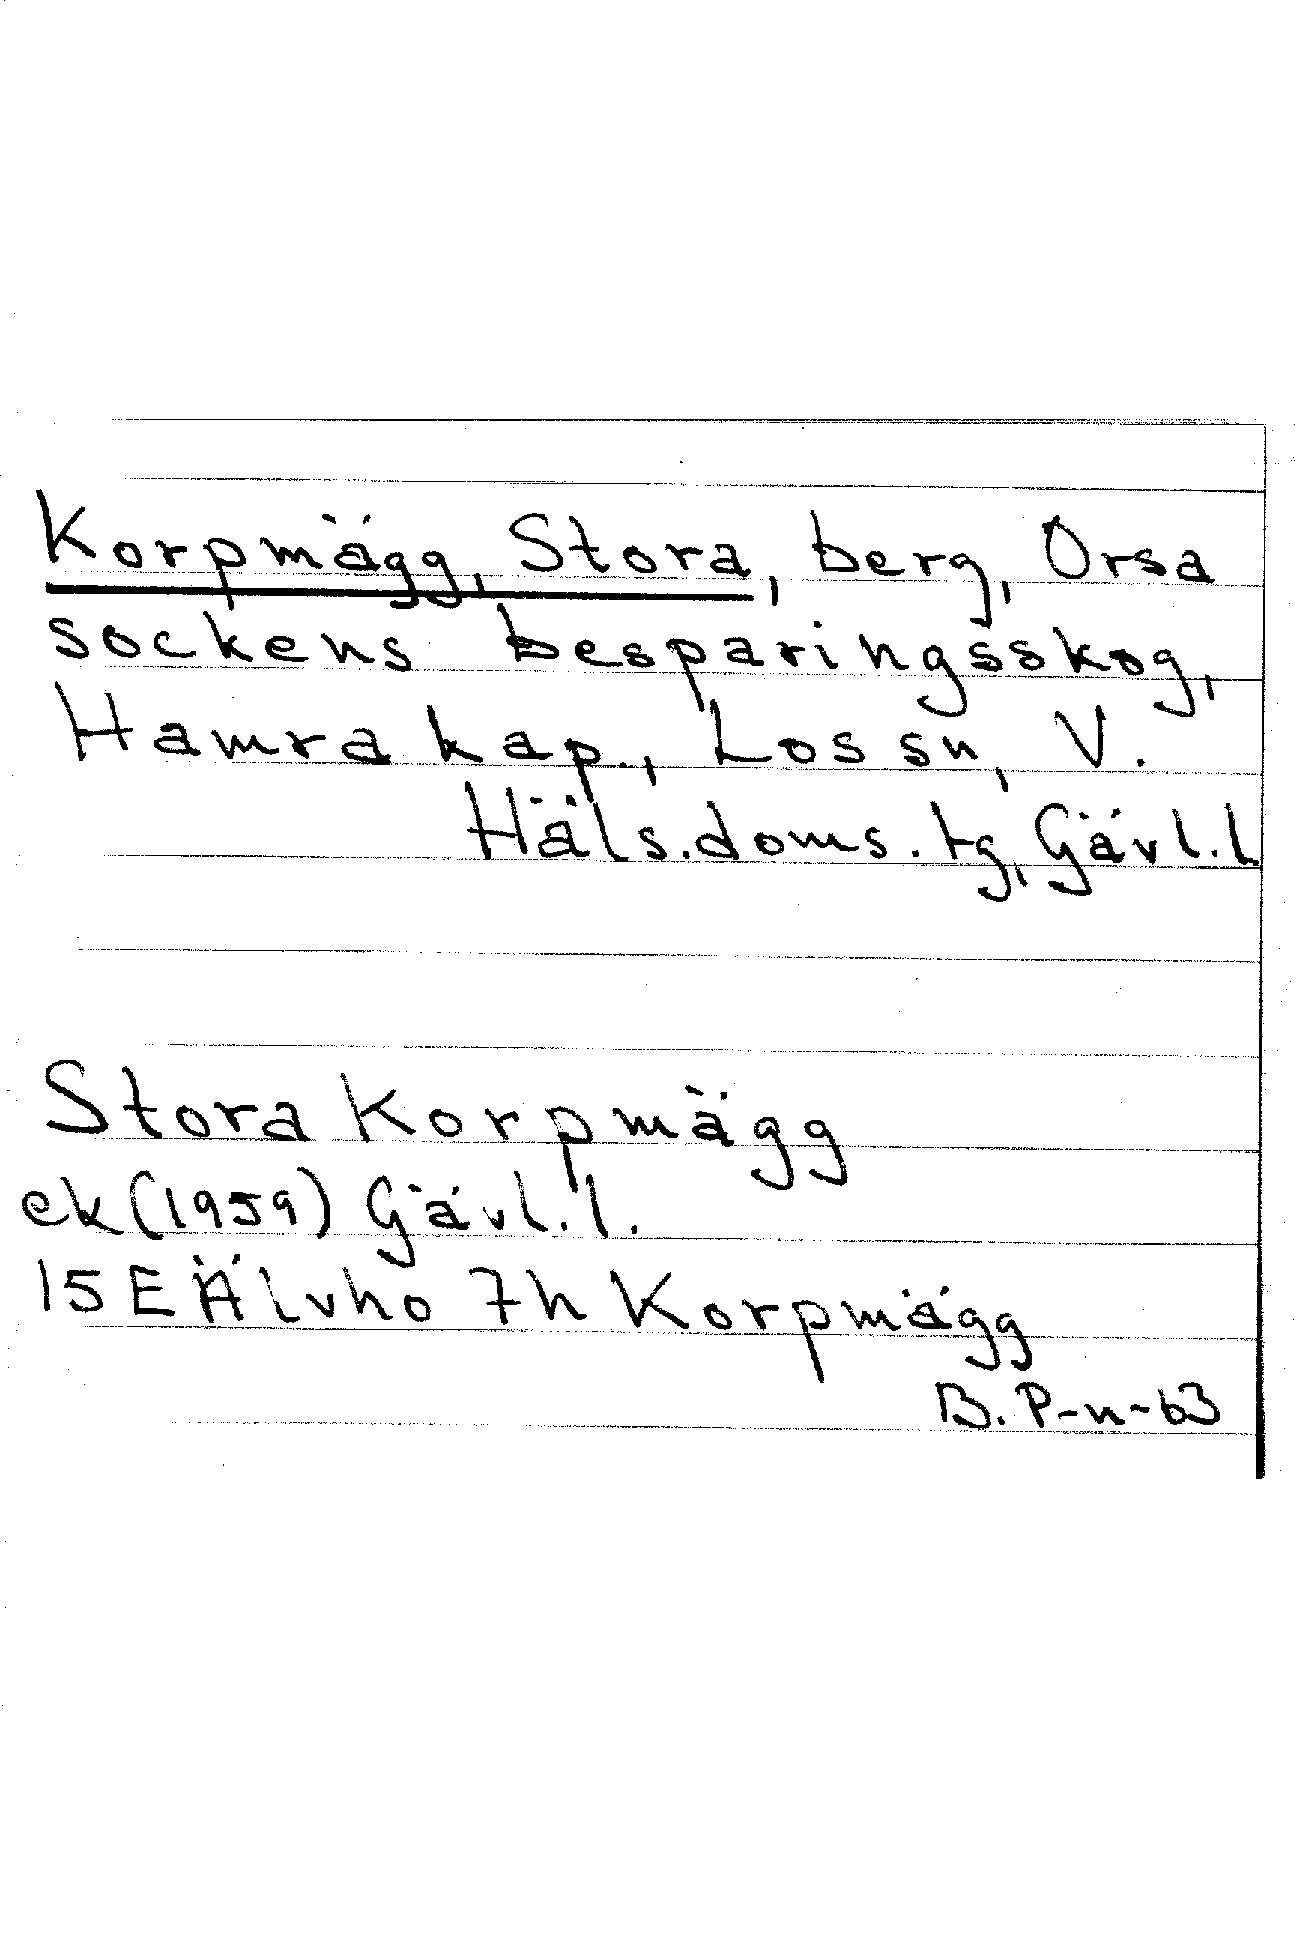 Korpmägg, Stora, berg, Orsa
sockens besparingsskog,
Hamra kap., Los sn, V.
Häls.doms.tg, Gävl.l
Stora Korpmägg
ek (1959) Gävl.l.
15 E Älvho 7h Korpmägg
B. P-n-63